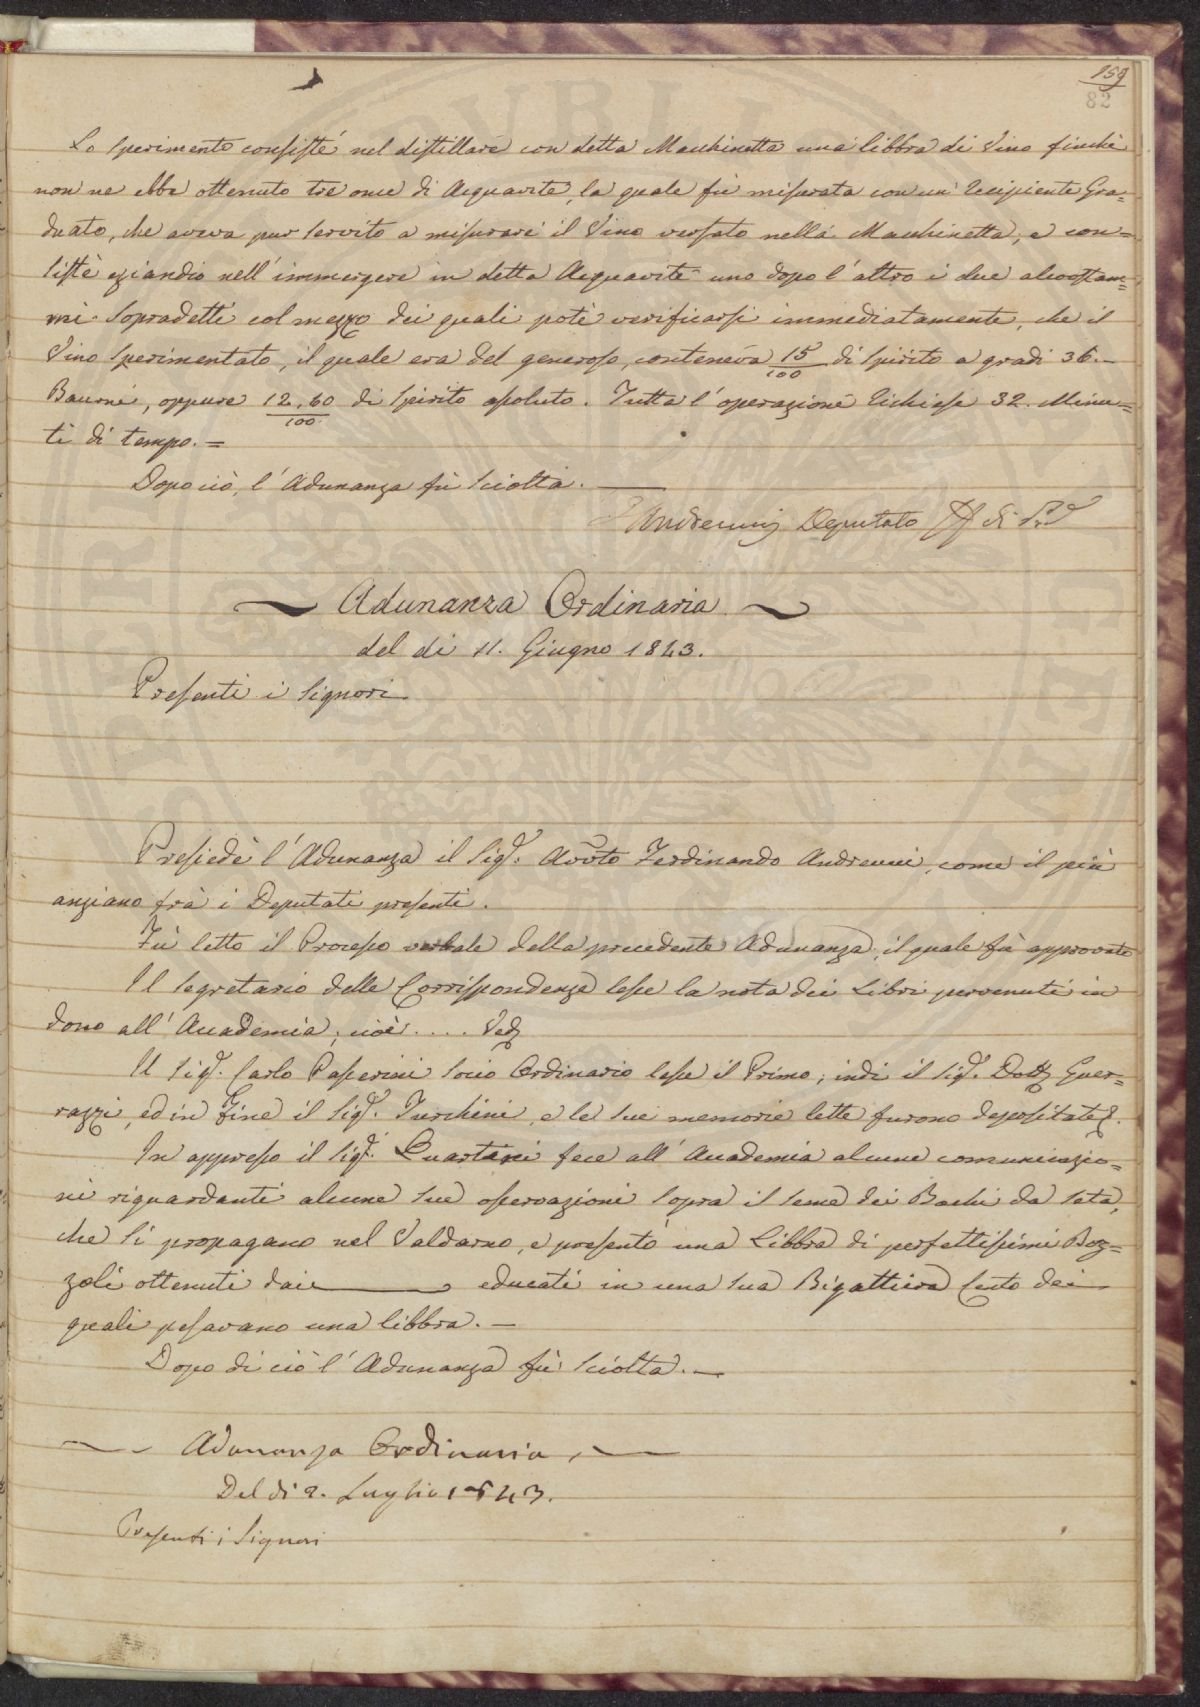 159
82
Lo Sperimento consistè nel distillare con detta Macchinetta una libbra di Vino finchè
non ne ebbe ottenuto tre once di Acquavite, la quale fù misurata con un Recipiente Gra=
duato, che aveva pur servito a misurare il Vino versato nella Macchinetta, e con=
sistè eziandio nell'immergere in detta Acquavite uno dopo l'altro i due alcoolam=
mi sopradetti col mezzo dei quali potè verificarsi immediatamente, che il
Vino Sperimentato, il quale era del generoso, conteneva 15/100 di Spirito a gradi 36.
Baumé, oppure 12,60/100 di Spirito assoluto. Tutta l'operazione richiese 32. Minu=
ti di tempo.=
Dopo ciò, l'Adunanza fù Sciolta.
Andreucci Deputato ff di
Adunanza Ordinaria
del dì 11. Giugno 1843.
Presenti i Signori
Presiedè l'Adunanza il Sigr. Avvto Ferdinando Andreucci, come il più
anziano frà i Deputati presenti.
Fù letto il Processo verbale della precedente Adunanza, il quale fù approvato
Il Segretario delle Corrispondenze lesse la nota dei Libri pervenuti in
dono all'Accademia, cioè.... Ved
Il Sigr. Carlo Passerini Socio Ordinario lesse il Primo; indi il Sigr. Dott Guer=
razzi, ed in Fine il Sigr. Turchini, e le sue memorie lette furono depositate.
In appresso il Sigr. Guarteri fece all'Accademia alcune comunicazio=
ni riguardanti alcune sue osservazioni sopra il seme dei Bachi da seta,
che si propagano nel Valdarno, e presentò una Libbra di perfettissimi Boz=
zoli ottenuti dai educati in una sua Bigattiera Cento dei
quali pesavano una libbra.—
Dopo di ciò l'Adunanza fù sciolta.—
Adunanza Ordinaria
Del dì 2. Luglio 1843.
Presenti i Signori